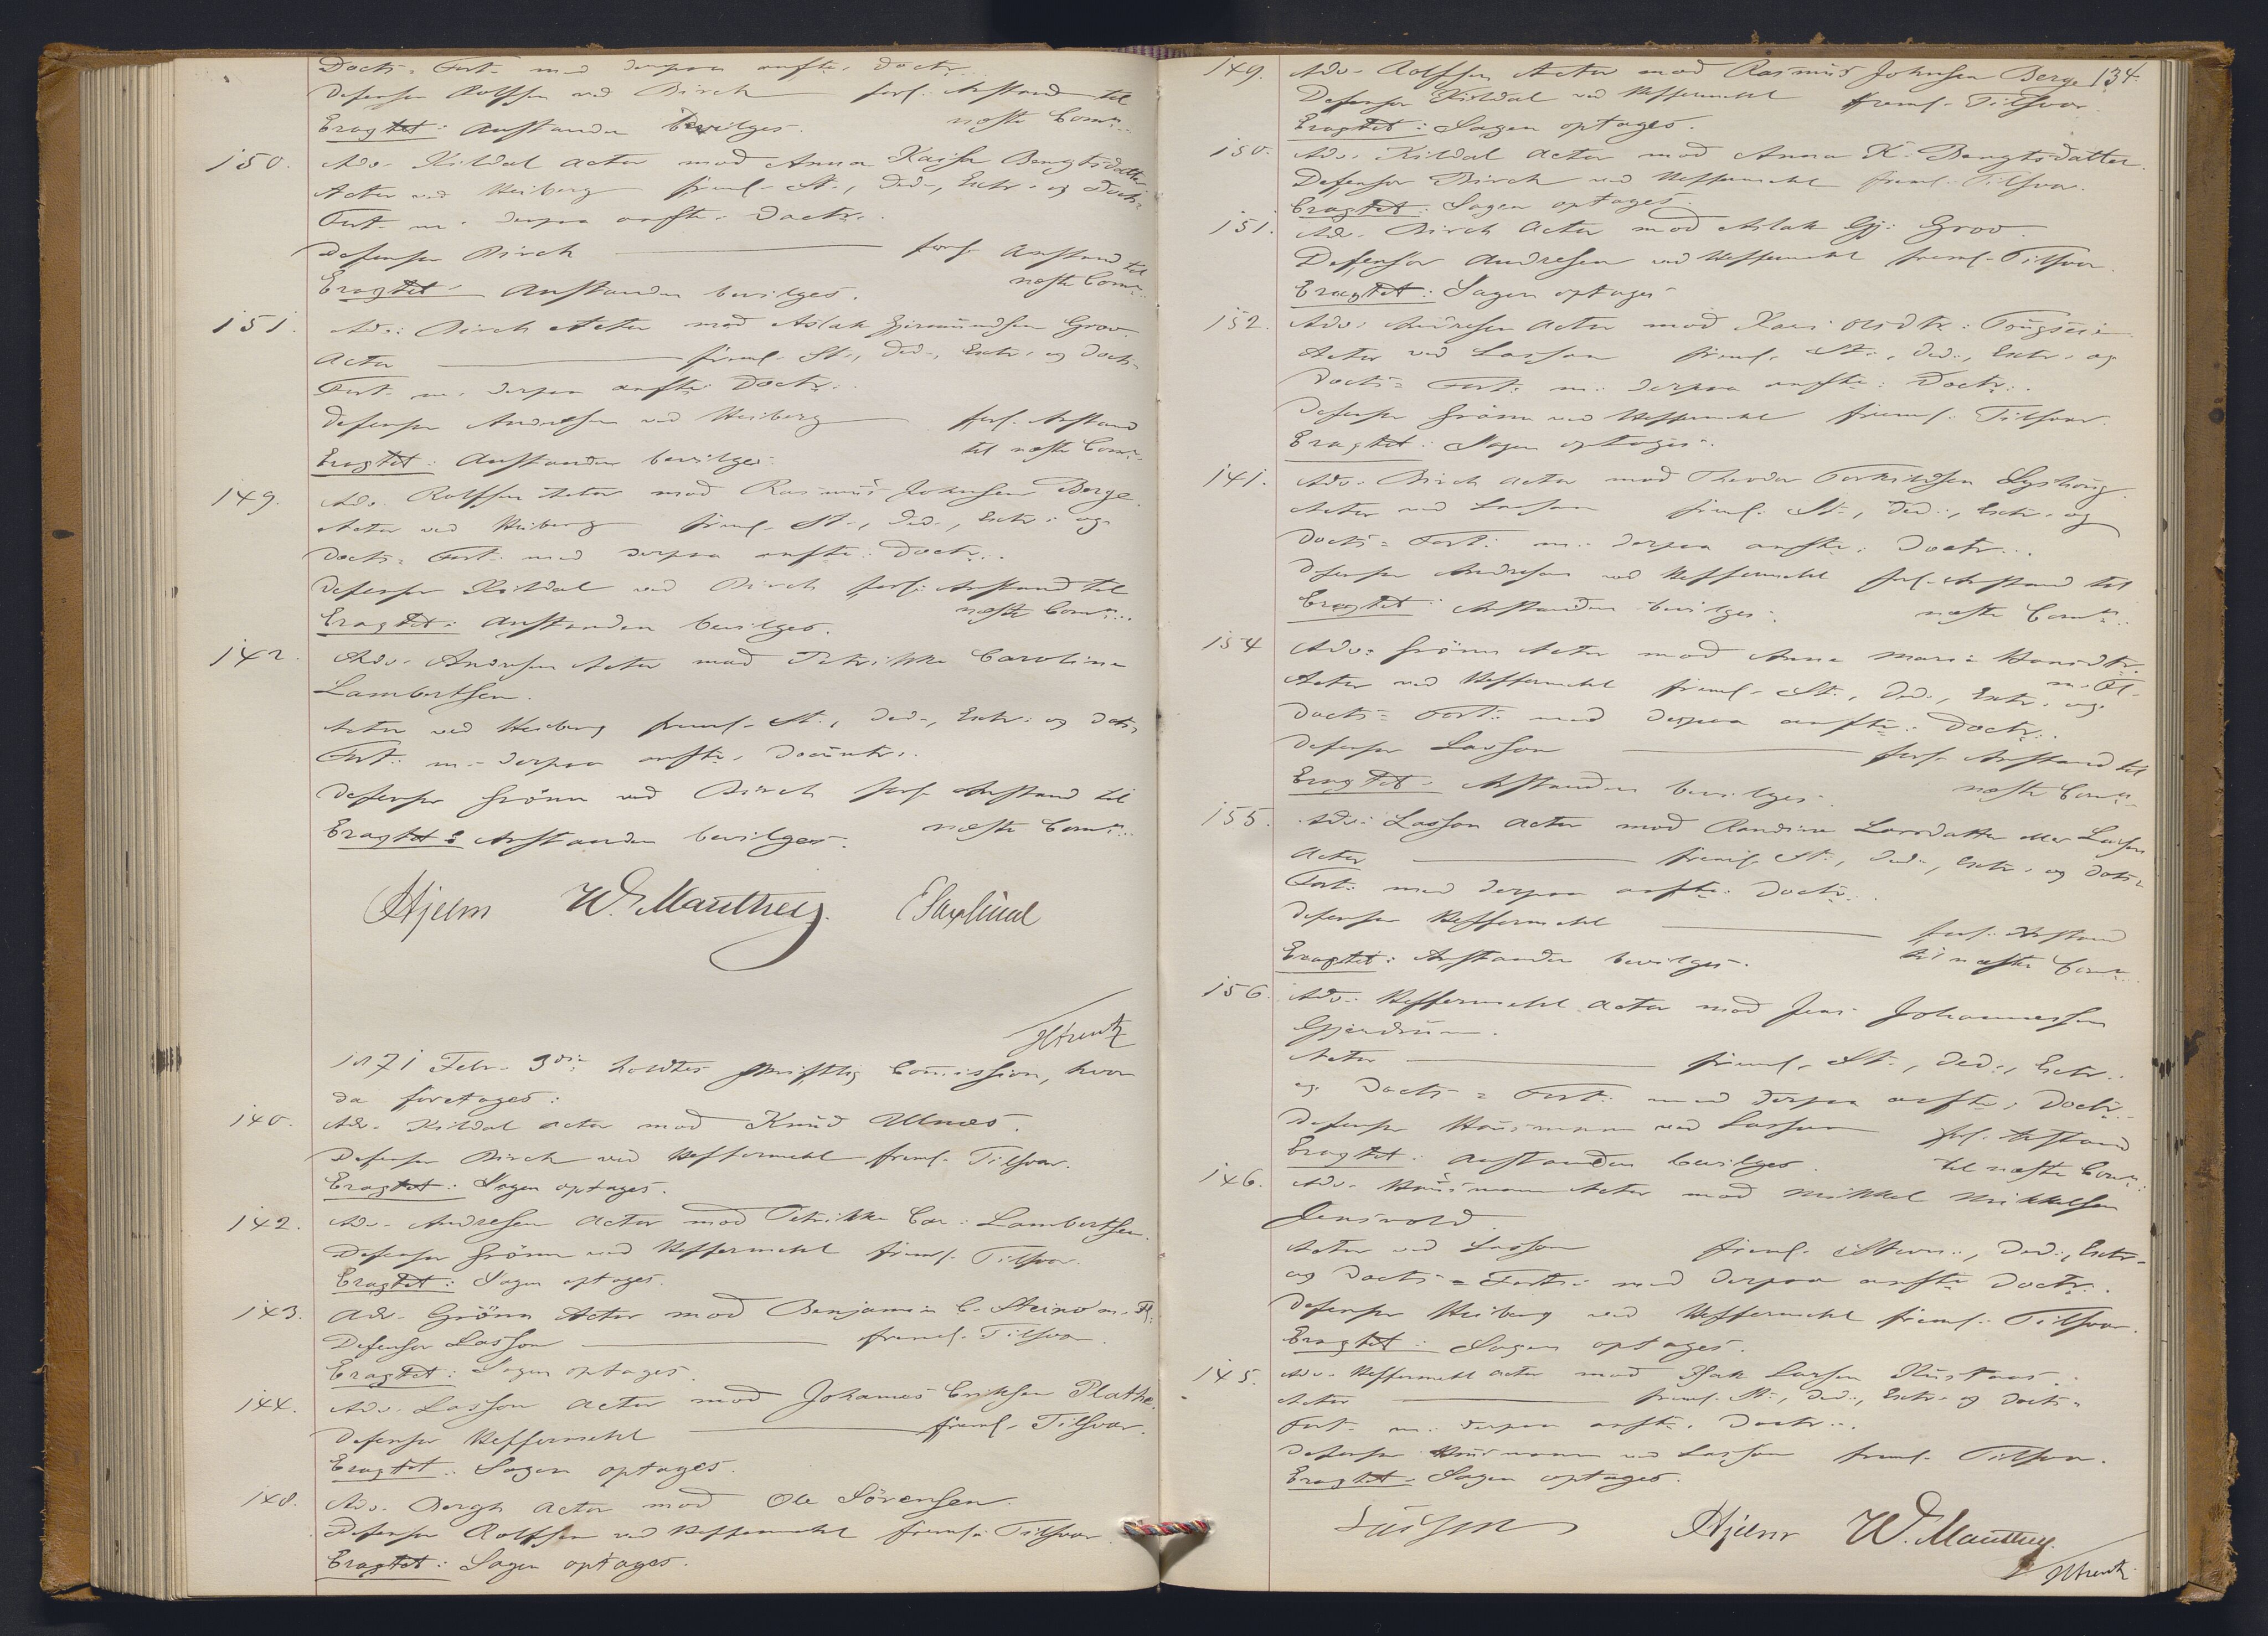 Docts. Fort. med derpaa anfte. Doctr.
Defensor Rolfsen ved Birch forl. Anstand til
næste Comn.
Eragtet: Anstanden bevilges.
150. Adv. Kildal Actor mod Anna Kajsa Bengtsdatter
Actor ved Heiberg freml. St., Ded., Extr. og Docts.
Fort. m. derpaa anfte. Doctr.
Defensor Birch forl. Anstand til
næste Comn.
Eragtet: Anstanden bevilges.
151. Adv. Birch Actor mod Aslak Gjermundsen Grov.
Actor freml. St., Ded., Extr. og Docts.
Fort. m. derpaa anfte. Doctr.
Defensor Andresen ved Heiberg forl. Anstand
til næste Comn.
Eragtet: Anstanden bevilges.
149. Adv. Rolfsen Actor mod Rasmus Johnsen Berge.
Actor ved Heiberg freml. St., Ded., Extr. og
Docts. Fort. med derpaa anfte. Doctr.
Defensor Kildal ved Birch forl. Anstand til
næste Comn.
Eragtet: Anstanden bevilges.
142. Adv. Andresen Actor mod Petrikke Caroline
Lambertsen.
Actor ved Heiberg freml. St., Ded., Extr. og Docts.
Fort. m. derpaa anfte. Documtr.
Defensor Grönn ved Birch forl. Anstand til
næste Comn.
Eragtet: Anstanden bevilges.
Hjelm W. Manthey. E Saxlund
1871 Febr. 3die holdtes skriftlig Commission, hvor
da foretages:
140. Adv. Kildal Actor mod Knud Ulnes.
Defensor Birch ved Heffermehl freml. Tilsvar.
Eragtet: Sagen optages.
142. Adv. Andresen Actor mod Petrikke Car. Lambertsen.
Defensor Grönn ved Heffermehl freml. Tilsvar.
Eragtet: Sagen optages.
143. Adv. Grönn Actor mod Benjamin C. Steino m. Fl.
Defensor Lasson freml. Tilsvar.
Eragtet: Sagen optages.
144. Adv. Lasson Actor mod Johannes Eriksen Plathe.
Defensor Heffermehl freml. Tilsvar.
Eragtet: Sagen optages.
148. Adv. Bergh Actor mod Ole Sörensen.
Defensor Rolfsen ved Heffermehl freml. Tilsvar.
Eragtet: Sagen optages.
134.
149. Adv. Rolfsen Actor mod Rasmus Johnsen Berge
Defensor Kildal ved Heffermehl freml. Tilsvar.
Eragtet: Sagen optages.
150. Adv. Kildal Actor mod Anna K. Bengtsdatter.
Defensor Birch ved Heffermehl freml. Tilsvar.
Eragtet: Sagen optages.
151. Adv. Birch Actor mod Aslak Gj. Grov.
Defensor Andresen ved Heffermehl freml. Tilsvar.
Eragtet: Sagen optages
152. Adv. Andresen Actor mod Kari Olsdtr.
Actor ved Lasson freml. St., Ded., Extr. og
Docts. Fort. m. derpaa anfte. Doctr.
Defensor Grönn ved Heffermehl freml. Tilsvar.
Eragtet: Sagen optages.
141. Adv. Birch Actor mod Theodor Torkildsen Lyshoug.
Actor ved Lasson freml. St., Ded., Extr. og
Docts. Fort. m. derpaa anfte. Doctr.
Defensor Andresen ved Heffermehl forl. Anstand til
næste Comn.
Eragtet: Anstanden bevilges.
154 Adv. Grönn Actor mod Anne Marie Hansdtr.
m. Fl.
Actor ved Heffermehl freml. St., Ded., Extr. og
Docts. Fort. med derpaa anfte. Doctr.
Defensor Lasson forl. Anstand til
næste Comn.
Eragtet: Anstanden bevilges.
155. Adv. Lasson Actor mod Randine Larsdatter eller Larsen
Actor freml. St., Ded., Extr. og Docts.
Fort. med derpaa anfte. Doctr.
Defensor Heffermehl forl. Anstand
til næste Comn.
Eragtet: Anstanden bevilges.
156. Adv. Heffermehl Actor mod Jens Johannessen
Gjerdrum.
Actor freml. St., Ded., Extr.
og Docts. Fort. med derpaa anfte. Doctr.
Defensor Housmann ved Lasson forl. Anstand
til næste Comn.
Eragtet: Anstanden bevilges.
146. Adv. Housmann Actor mod Mikkel Mikkelsen
Jensvold.
Actor ved Lasson freml. Stevn., Ded., Extr.
og Docts. Forts. med derpaa anfte Doctr.
Defensor Heiberg ved Heffermehl freml. Tilsvar.
Eragtet: Sagen optages.
145. Adv. Heffermehl Actor mod Isak Larsen Rustaas.
Actor freml. St., Ded., Extr. og Docts.
Fort. m. derpaa anfte. Doctr.
Defensor Housmann ved Lasson freml. Tilsvar.
Eragtet: Sagen optages.
Hjelm W. Manthey.